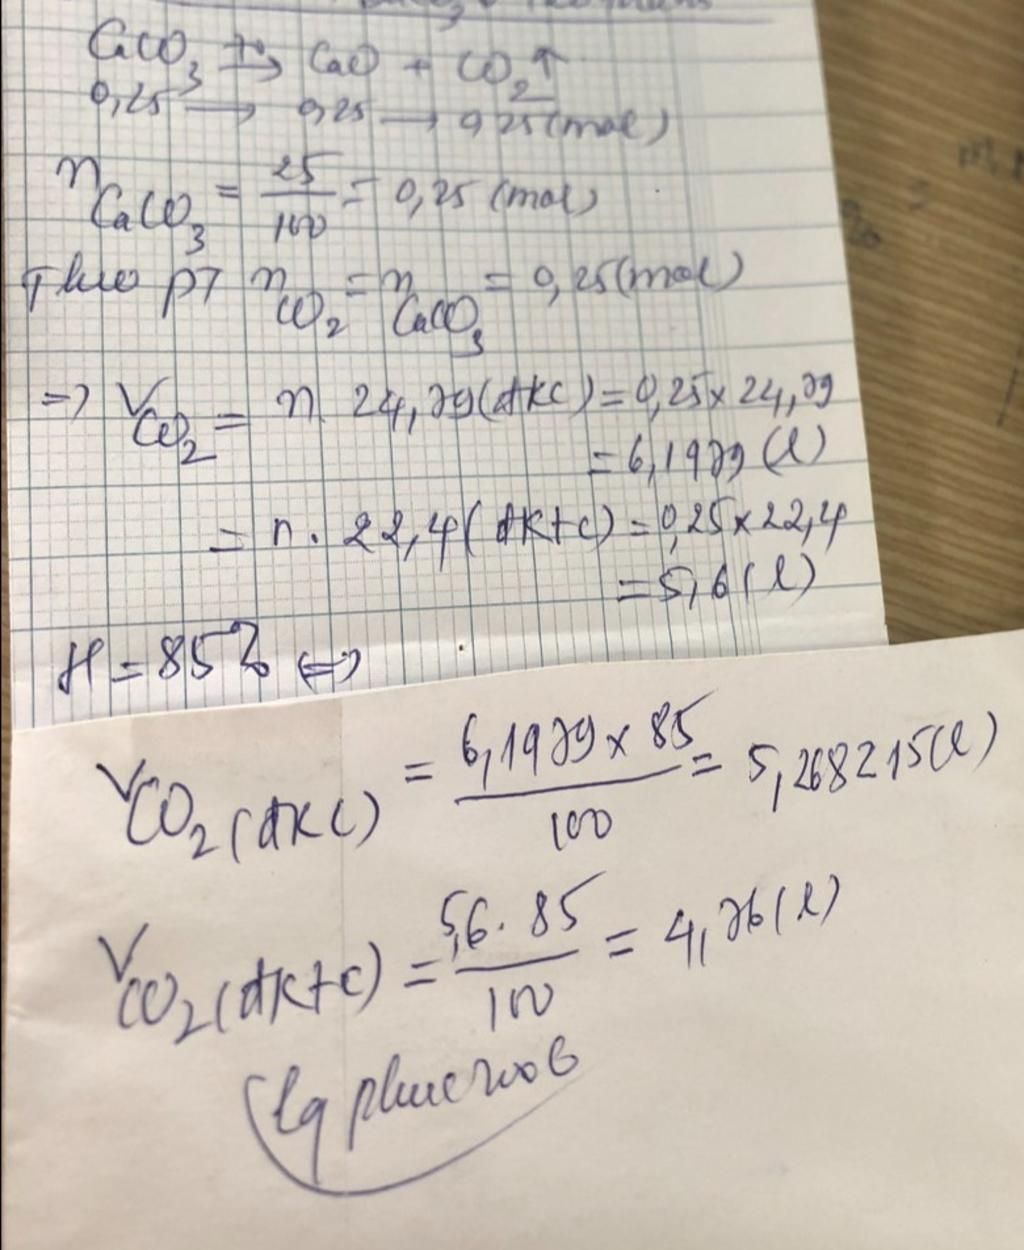 CaCO3 t° → CaO + CO2↑
0,25 → 0,25 → 0,25 (mol)
nCaCO3 = 25/100 = 0,25 (mol)
Theo pT nCO2 = nCaCO3 = 0,25 (mol)
=> VCO2 = n 24,79 (đkc) = 0,25 x 24,79
= 6,1979 (l)
= n. 22,4 (đktc) = 0,25 x 22,4
= 5,6 (l)
H = 85% <=>
VCO2 (đkc) = 6,1979 x 85/100 = 5,268215 (l)
VCO2 (đktc) = 5,6 . 85/100 = 4,76 (l)